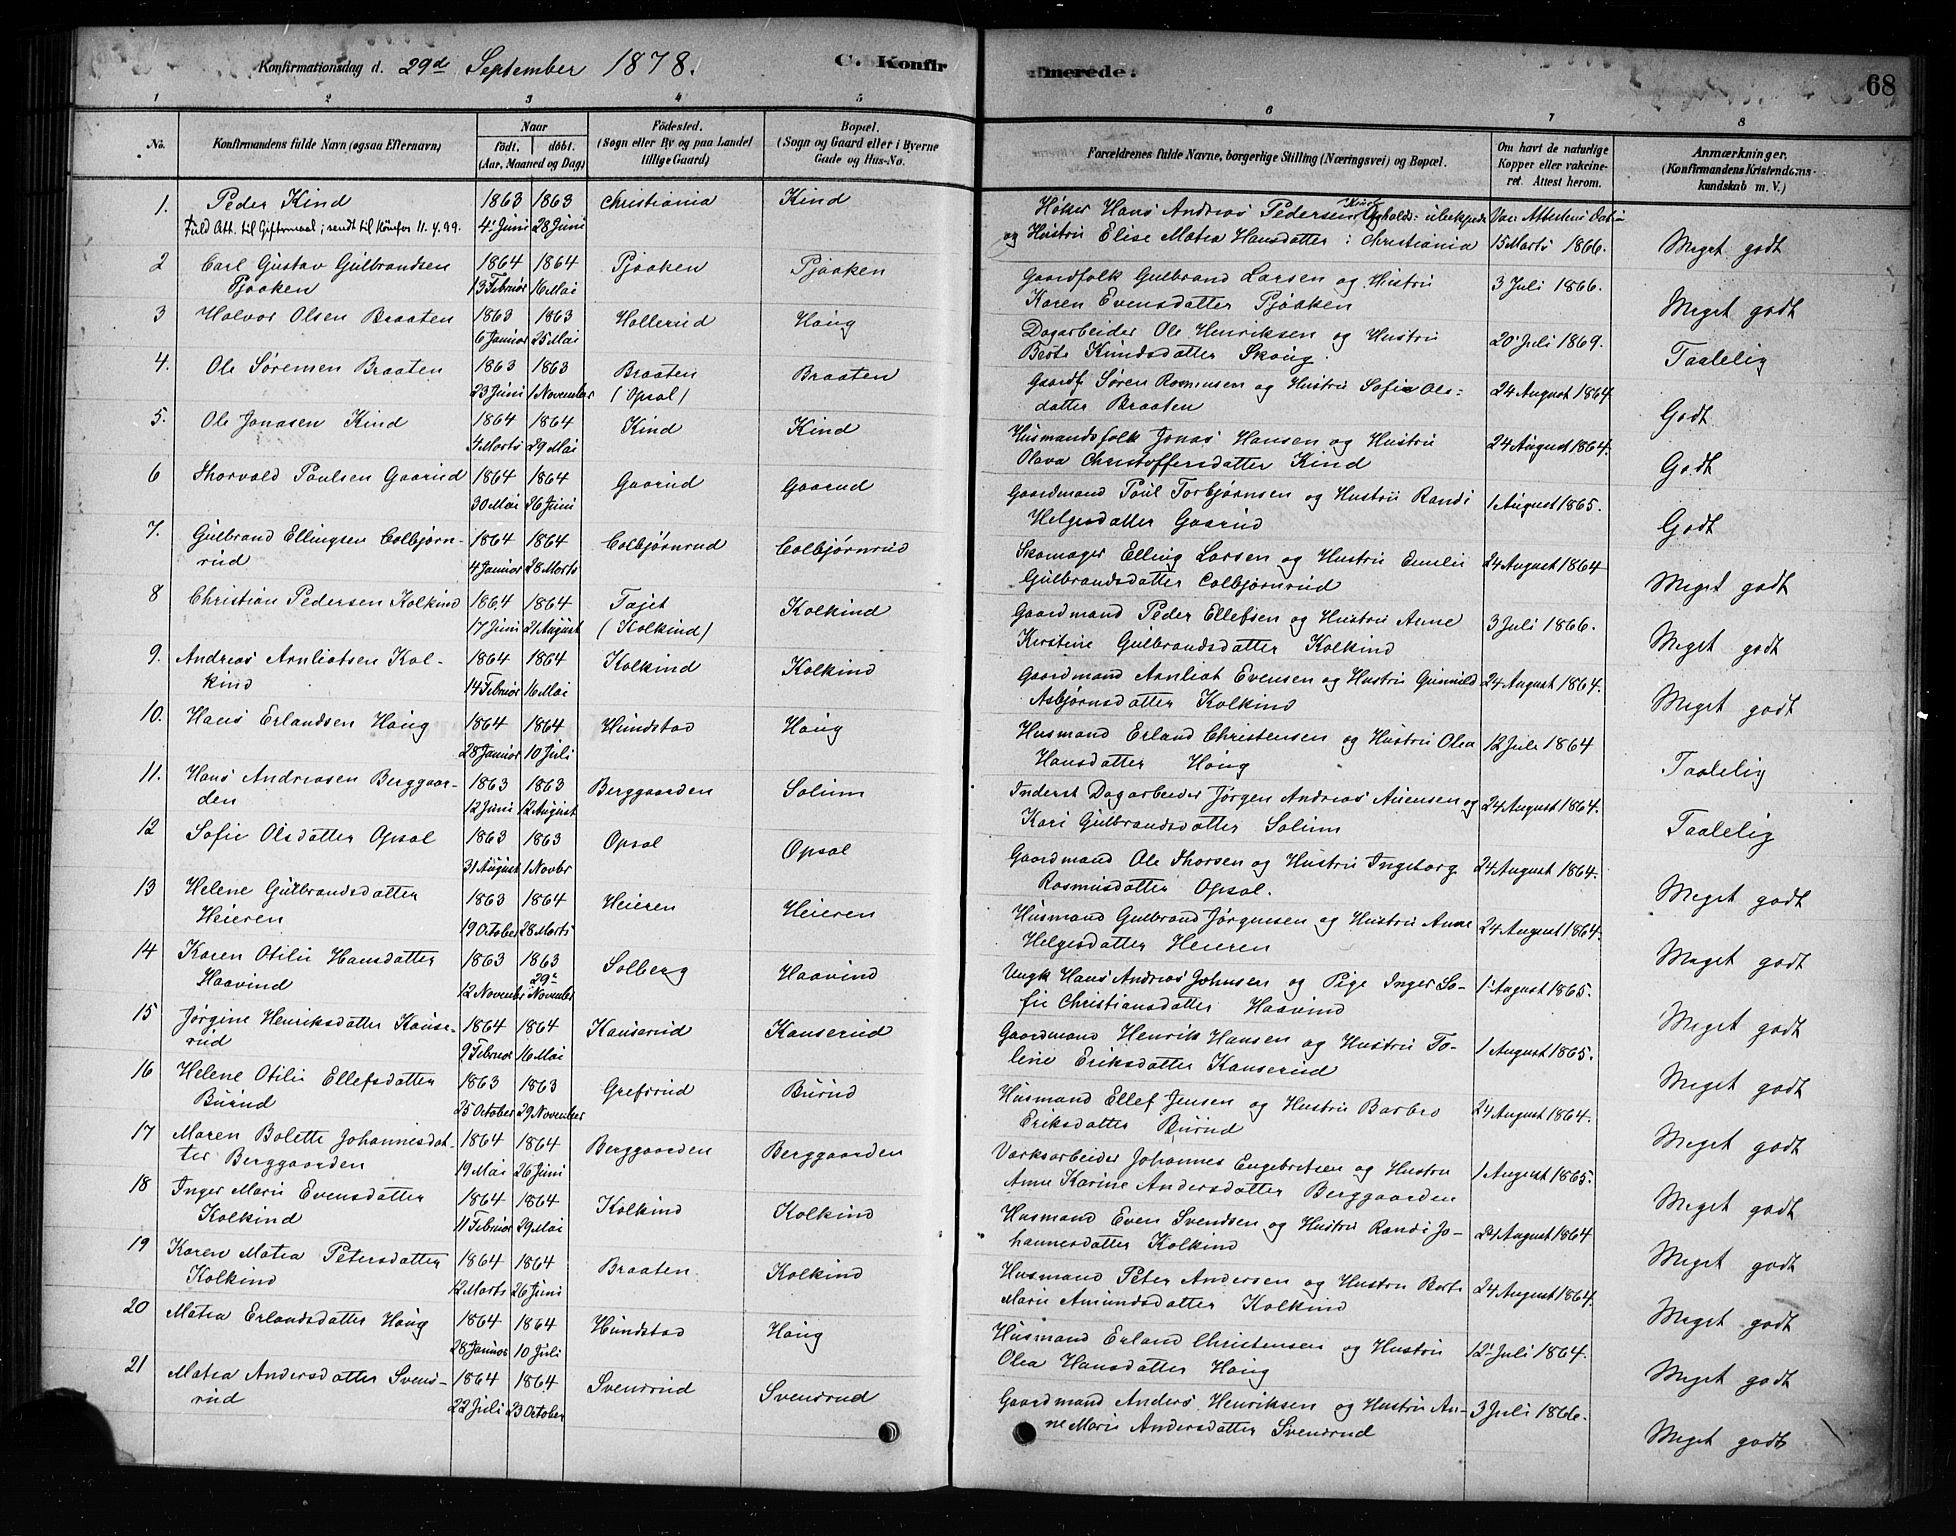 Konfirmationsdag d. 29d September 1878. C. Konfirmerede. 68
1 2 3 4 5 6 7 8
No. Konfirmandens fulde Navn (ogsaa Efternavn) Naar født. døbt. (Aar, Maaned og Dag) Fødested. (Sogn eller By og paa Landet tillige Gaard) Bopæl. (Sogn og Gaard eller i Byerne Gade og Hus-No. Forældrenes fulde Navne, borgerlige Stilling (Næringsvei) og Bopæl. Om havt de naturlige Kopper eller vakcineret. Attest herom. Anmærkninger. (Konfirmandens Kristendomskundskab m. V.)
1. Peder Kind 1863 1863 Christiania Kind Høker Hans Andreas Pedersen Kind Ophold: ubekjendt Vac. Attestens Datum
Fuld Att. til Giftermaal; sendt til Hönefos 11.4.99. 4. Juni 28 Juni og Hustru Elise Matea Hansdatter i Christiania 15 Marts 1866. Meget godt
2 Carl Gustav Gulbrandsen 1864 1864 Pjaaken Pjaaken Gaardfolk Gulbrand Larsen og Hustru 3 Juli 1866.
Pjaaken 13 Februar 16 Mai Karen Evensdatter Pjaaken Meget godt
3 Halvor Olsen Braaten 1863 1863 Hollerud Haug Dagarbeider Ole Henriksen og Hustru 20 Juli 1869.
6 Januar 25 Mai Berte Knudsdatter Skoug. Taalelig
4. Ole Sørensen Braaten 1863 1863 Braaten Braaten Gaardf. Søren Rasmusen og Hustru Sofie Ols- 24 August 1864
23 Juni 1 November (Opsal) datter Braaten Godt
5. Ole Jonasen Kind 1864 1864 Kind Kind Husmandsfolk Jonas Hansen og Hustru 24 August 1864.
4 Marts 29 Mai Olava Christoffersdatter Kind Godt
6 Thorvald Paulsen Gaarud 1864 1864 Gaarud Gaarud Gaardmand Paul Torbjørnsen og Hustru Randi 1 August 1865.
30 Mai 26 Juni Helgesdatter Gaarud Godt
7. Gulbrand Ellingsen Colbjørn- 1864 1864 Colbjørnrud Colbjørnrud Skomager Elling Larsen og Hustru Emelie 24 August 1864
rud 4 Januar 28 Marts Gulbrandsdatter Colbjørnrud Meget godt
8 Christian Pedersen Kolkind 1864 1864 Tajet Kolkind Gaardmand Peder Ellefsen og Hustru Anne 3 Juli 1866.
17 Juni 21 August (Kolkind) Kirstine Gulbrandsdatter Kolkind Meget godt
9. Andreas Arnliotsen Kol- 1864 1864 Kolkind Kolkind Gaardmand Arnliot Evensen og Hustru Gunnild 24 August 1864.
kind 14 Februar 16 Mai Asbjørnsdatter Kolkind Meget godt
10. Hans Erlandsen Haug 1864 1864 Hundstad Haug Husmand Erland Christensen og Hustru Olea 12 Juli 1864
28 Januar 10 Juli Hansdatter Haug Taalelig
11. Hans Andreasen Berggaar- 1863 1863 Berggaarden Solum Inderst Dagarbeider Jørgen Andreas Auensen og 24 August 1864.
den 12 Juni 12 August Kari Gulbrandsdatter Solum Taalelig
12 Sofie Olsdatter Opsal 1863 1863 Opsal Opsal Gaardmand Ole Thorsen og Hustru Ingeborg 24 August 1864.
31 August 1 Novbr Rasmusdatter Opsal. Meget godt
13 Helene Gulbrandsdatter 1863 1864 Heieren Heieren Husmand Gulbrand Jørgensen og Hustru Anne 24 August 1864.
Heieren 19 October 28 Marts Helgesdatter Heieren Meget godt
14 Karen Otilie Hansdatter 1863 1863 Solberg Haavind Ungk Hans Andreas Johnsen og Pige Inger So- 1 August 1865.
Haavind 12 November 29 November fie Christiansdatter Haavind Meget godt
15 Jørgine Henriksdatter Kause- 1864 1864 Kauserud Kauserud Gaardmand Henrik Hansen og Hustru To- 1 August 1865.
rud 9 Februar 16 Mai line Eriksdatter Kauserud Meget godt
16 Helene Otilie Ellefsdatter 1863 1863 Grefsrud Burud Husmand Ellef Jensen og Hustru Barbro 24 August 1864.
Burud 25 October 29 November Eriksdatter Burud Meget godt
17 Maren Bolette Johannesdat- 1864 1864 Berggaarden Berggaarden Værksarbeider Johannes Engebretsen og Hustru 1 August 1865.
ter Berggaarden 19 Mai 26 Juni Anne Karine Andersdatter Berggaarden Meget godt
18 Inger Marie Evensdatter 1864 1864 Kolkind Kolkind Husmand Even Svendsen og Hustru Randi Jo- 24 August 1864
Kolkind 11 Februar 29 Mai hannesdatter Kolkind Meget godt
19 Karen Matea Petersdatter 1864 1864 Braaten Kolkind Husmand Peter Andersen og Hustru Berte 24 August 1864.
Kolkind 12 Marts 26 Juni Marie Amundsdatter Kolkind Meget godt
20 Matea Erlandsdatter Haug 1864 1864 Hundstad Haug Husmand Erland Christensen og Hustru 12 Juli 1864.
28 Januar 10 Juli Olea Hansdatter Haug Meget godt
21 Matea Andersdatter Svens- 1864 1864 Svensrud Svensrud Gaardmand Anders Henriksen og Hustru An- 3 Juli 1866.
rud 22 Juli 23 October ne Marie Andersdatter Svensrud Meget godt